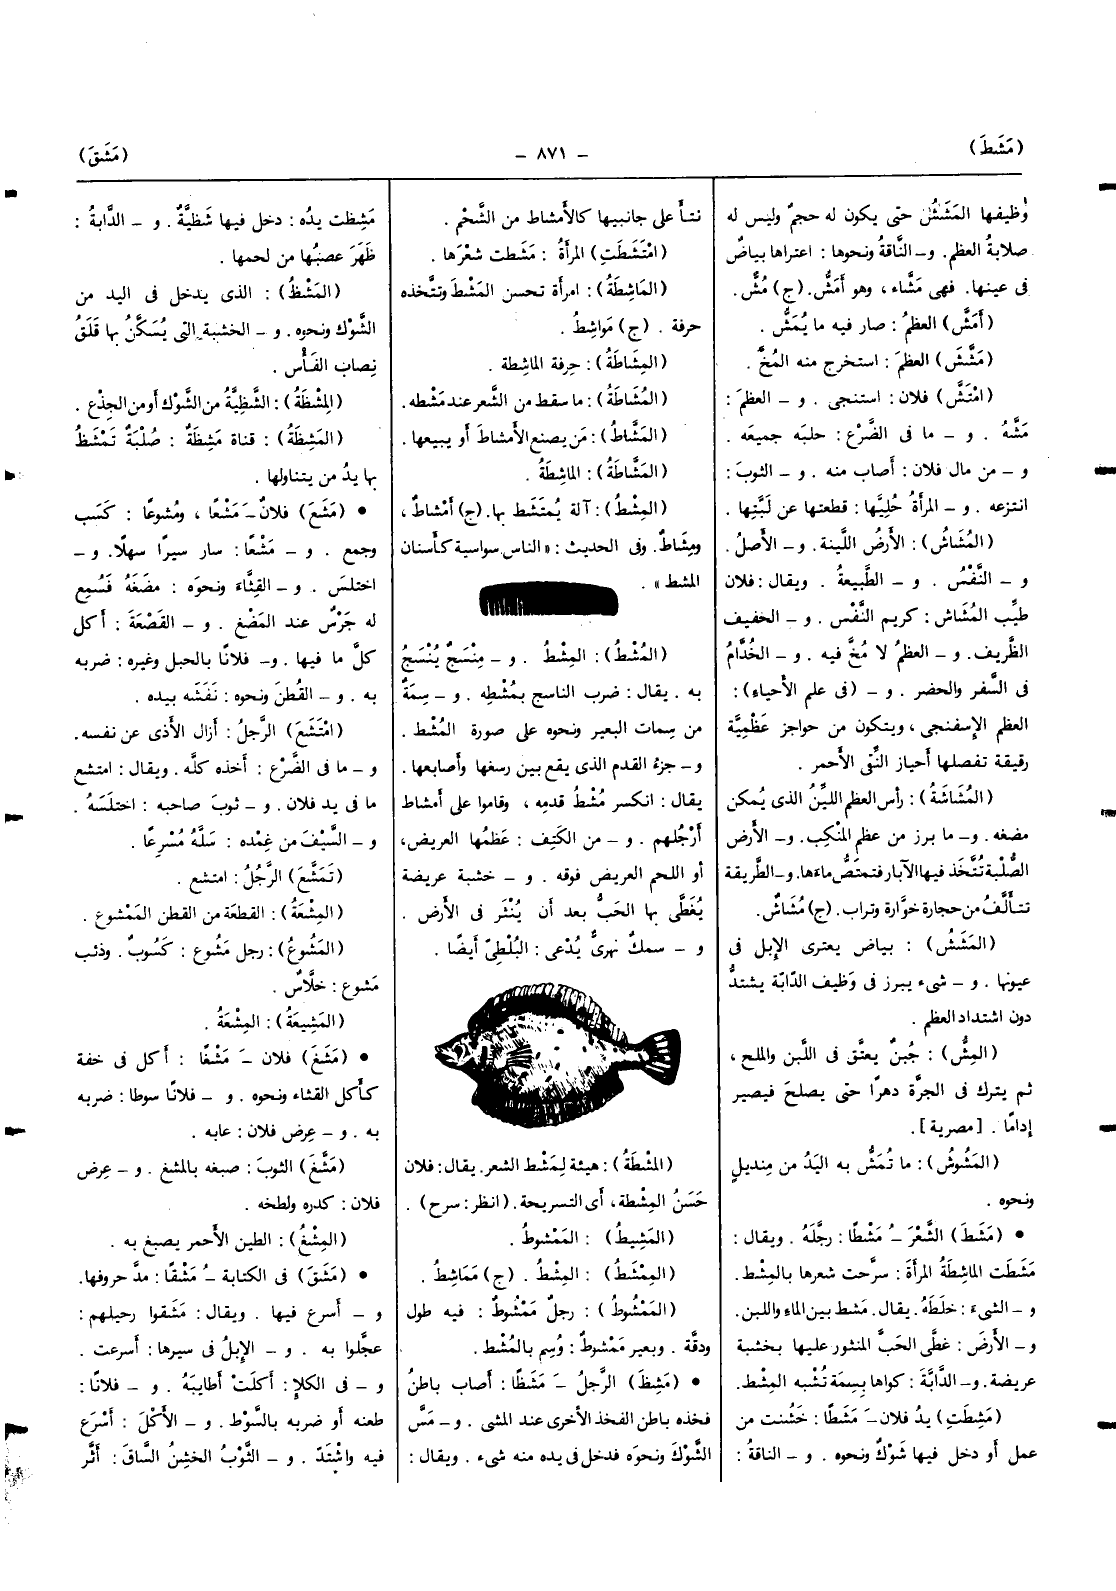 (مَشَطَ)
– ٨٧١ –
(مَشَقَ)
وَظيفها المَشَشُ حتى يكون له حجمٌ وليس له
صلابةُ العظم. و– النَّاقةُ ونحوها : اعتراها بياضٌ
فى عينها. فهى مَشَّاء ، وهو أَمَشُّ. (ج) مُشٌّ.
(أَمَشَّ) العظمُ : صار فيه ما يُمَشُّ .
(مَشَّشَ) العظمَ : استخرج منه المُخَّ .
(امْتَشَّ) فلان : استنجى . و – العظمَ :
مَشَّهُ . و – ما فى الضَّرْع : حلبَه جميعَه .
و – من مال فلان : أصاب منه . و – الثوبَ :
انتزعه . و – المرأةُ حُلِيَّها : قطعتها عن لَبَّتِها .
(المُشَاش) : الأَرضُ اللَّينة. و– الأَصلُ.
و – النَّفْسُ . و – الطَّبيعةُ . ويقال : فلان
طيِّب المُشَاش : كريم النَّفْس . و – الخفيف
الظَّريف. و – العظمُ لا مُخَّ فيه . و – الخُدَّامُ
فى السَّفر والحضر . و – (فى علم الأَحياء) :
العظم الإسفنجى ، ويتكون من حواجز عَظْمِيَّة
رقيقة تفصلها أحياز النِّقْى الأَحمر .
(المُشَاشَةُ) : رأس العظم الليِّنُ الذى يُمكن
مضغه. و– ما برز من عظم المنْكِب. و– الأَرض
الصُّلْبة تُتَّخَذ فيها الآبار فتمتصُّ ماءها. و– الطَّريقة
تتأَلَّفُ من حجارة خوَّارة وتراب. (ج) مُشَاشٌ.
(المَشَشُ) : بياض يعترى الإبل فى
عيونها . و – شىء يبرز فى وَظيف الدَّابَّة يشتدُّ
دون اشتداد العظم .
(المِشُّ) : جُبنٌ يعتَّق فى اللَّبن والملح ،
ثم يترك فى الجرَّة دهرًا حتى يصلحَ فيصير
إدامًا . [ مصرية ].
(المَشُوش) : ما تُمَشُّ به اليَدُ من مِنديلٍ
ونحوه .
● (مَشَطَ) الشَّعْرَ ـُ مَشْطًا : رجَّلَهُ . ويقال :
مَشَطَت الماشِطةُ المرأةَ : سرَّحت شعرها بالمِشط.
و – الشىءَ : خلَطَهُ. يقال. مَشط بين الماءِ واللبن.
و – الأَرضَ : غطَّى الحَبَّ المنثور عليها بخشبة
عريضة. و– الدَّابَّةَ : كواها بِسِمة تُشْبه المِشط.
(مَشِطَتِ) يدُ فلان ـَ مَشَطًا : خَشُنت من
عمل أَو دخل فيها شَوْكٌ ونحوه . و – الناقةُ :
نتـأَ على جانبيها كالأَمشاط من الشَّحْم .
(امْتَشَطَتِ) المرأةُ : مَشَطت شعْرَها .
(المَاشِطَةُ) : امرأة تحسن المَشْطَ وتتَّخذه
حرفة . (ج) مَواشِطُ .
(المِشَاطَةُ) : حِرفة الماشِطة .
(المُشَاطَةُ) : ما سقط من الشَّعر عند مَشْطه .
(المَشَّاطُ) : مَن يصنع الأَمشاطَ أَو يبيعها .
(المَشَّاطَةُ) : الماشِطَةُ .
(المِشْطُ) : آلة يُمتَشَط بها. (ج) أَمْشاطٌ ،
ومِشَاطٌ. وفى الحديث : «الناس سواسية كأَسنان
المشط» .
(المُشْطُ) : المِشطُ . و – مِنْسَجٌ يُنْسَجُ
به . يقال : ضرب الناسج بمُشْطِه . و – سِمَةٌ
من سِمات البعير ونحوه على صورة المُشْط .
و – جزءُ القدم الذى يقع بين رسغها وأَصابعها .
يقال : انكسر مُشْطُ قدمِه ، وقاموا على أَمشاط
أَرْجُلهم . و – من الكَتِف : عَظمُها العريض ،
أَو اللحم العريض فوقه . و – خشبة عريضة
يُغَطَّى بها الحَبُّ بعد أن يُنْثَر فى الأَرض .
و – سمكٌ نهرىٌّ يُدْعى : البُلْطِىّ أَيضًا .
(المِشْطَةُ) : هيئة لِمَشْط الشعر. يقال : فلان
حَسَنُ المِشْطة ، أَى التسريحة. (انظر : سرح) .
(المَشِيطُ) : المَمْشوطُ .
(المِمْشَطُ) : المِشْطُ . (ج) مَمَاشِطُ .
(المَمْشُوطُ) : رجلٌ مَمْشُوطٌ : فيه طول
ودقَّة . وبعير مَمْشوطٌ : وُسِم بالمُشْط .
● (مَشِظَ) الرَّجلُ ـَ مَشَظًا : أَصاب باطنُ
فخذه باطن الفخذ الأُخرى عند المشى . و – مَسَّ
الشَّوْكَ ونحوَه فدخل فى يده منه شىء . ويقال :
مَشِظت يدُه : دخل فيها شَظيَّةٌ . و – الدَّابةُ :
ظَهَرَ عصبُها من لحمها .
(المَشَظُ) : الذى يدخل فى اليد من
الشَّوْك ونحوه. و – الخشبة التى يُسَكَّنُ بها قَلَقُ
نِصاب الفَأْس .
(المِشْظَةُ) : الشَّظيَّةُ من الشَّوْك أَو من الجِذْع .
(المَشِظَةُ) : قناة مَشِظَةٌ : صُلْبَةٌ تَمْشَظُ
بها يدُ من يتناولها .
● (مَشَعَ) فلانٌ ـَ مَشْعًا ، ومُشوعًا : كَسَب
وجمع . و – مَشْعًا : سار سيرًا سهلًا. و –
اختلسَ . و – القِثَّاءَ ونحوَه : مضَغَهُ فَسُمِع
له جَرْسٌ عند المَضْغ . و – القَصْعَةَ : أَكل
كلَّ ما فيها . و– فلانًا بالحبل وغيره : ضربه
به . و – القُطنَ ونحوَه : نَفَشَه بيده .
(امْتَشَعَ) الرَّجلُ : أَزال الأَذى عن نفسه.
و – ما فى الضَّرْع : أَخذه كلَّه . ويقال : امتشع
ما فى يد فلان . و – ثوبَ صاحبه : اختلَسَهُ .
و – السَّيْفَ من غِمْده : سَلَّهُ مُسْرِعًا .
(تَمَشَّعَ) الرَّجُلُ : امتشع .
(المِشْعَةُ) : القطعَة من القطن المَمْشوع .
(المَشُوعُ) : رجل مَشُوع : كَسُوبٌ. وذئب
مَشوع : خلَّاسٌ .
(المَشِيعَةُ) : المِشْعَةُ .
● (مَشَغَ) فلان ـَ مَشْغًا : أَكل فى خفة
كأَكل القثاء ونحوه . و – فلانًا سوطا : ضربه
به . و – عِرض فلان : عابه .
(مَشَّغَ) الثوبَ : صبغه بالمشغ . و – عِرض
فلان : كدره ولطخه .
(المِشْغُ) : الطين الأَحمر يصبغ به .
● (مَشَقَ) فى الكتابة ـُ مَشْقًا : مدَّ حروفها.
و – أَسرع فيها . ويقال : مَشَقوا رحيلهم :
عجَّلوا به . و – الإبلُ فى سيرها : أَسرعت .
و – فى الكلإ : أَكلَتْ أَطايبَهُ . و – فلانًا :
طعنه أَو ضربه بالسَّوْط . و – الأَكْلَ : أَسْرَع
فيه واشْتَدّ . و – الثَّوْبُ الخشِنُ السَّاقَ : أَثَّر